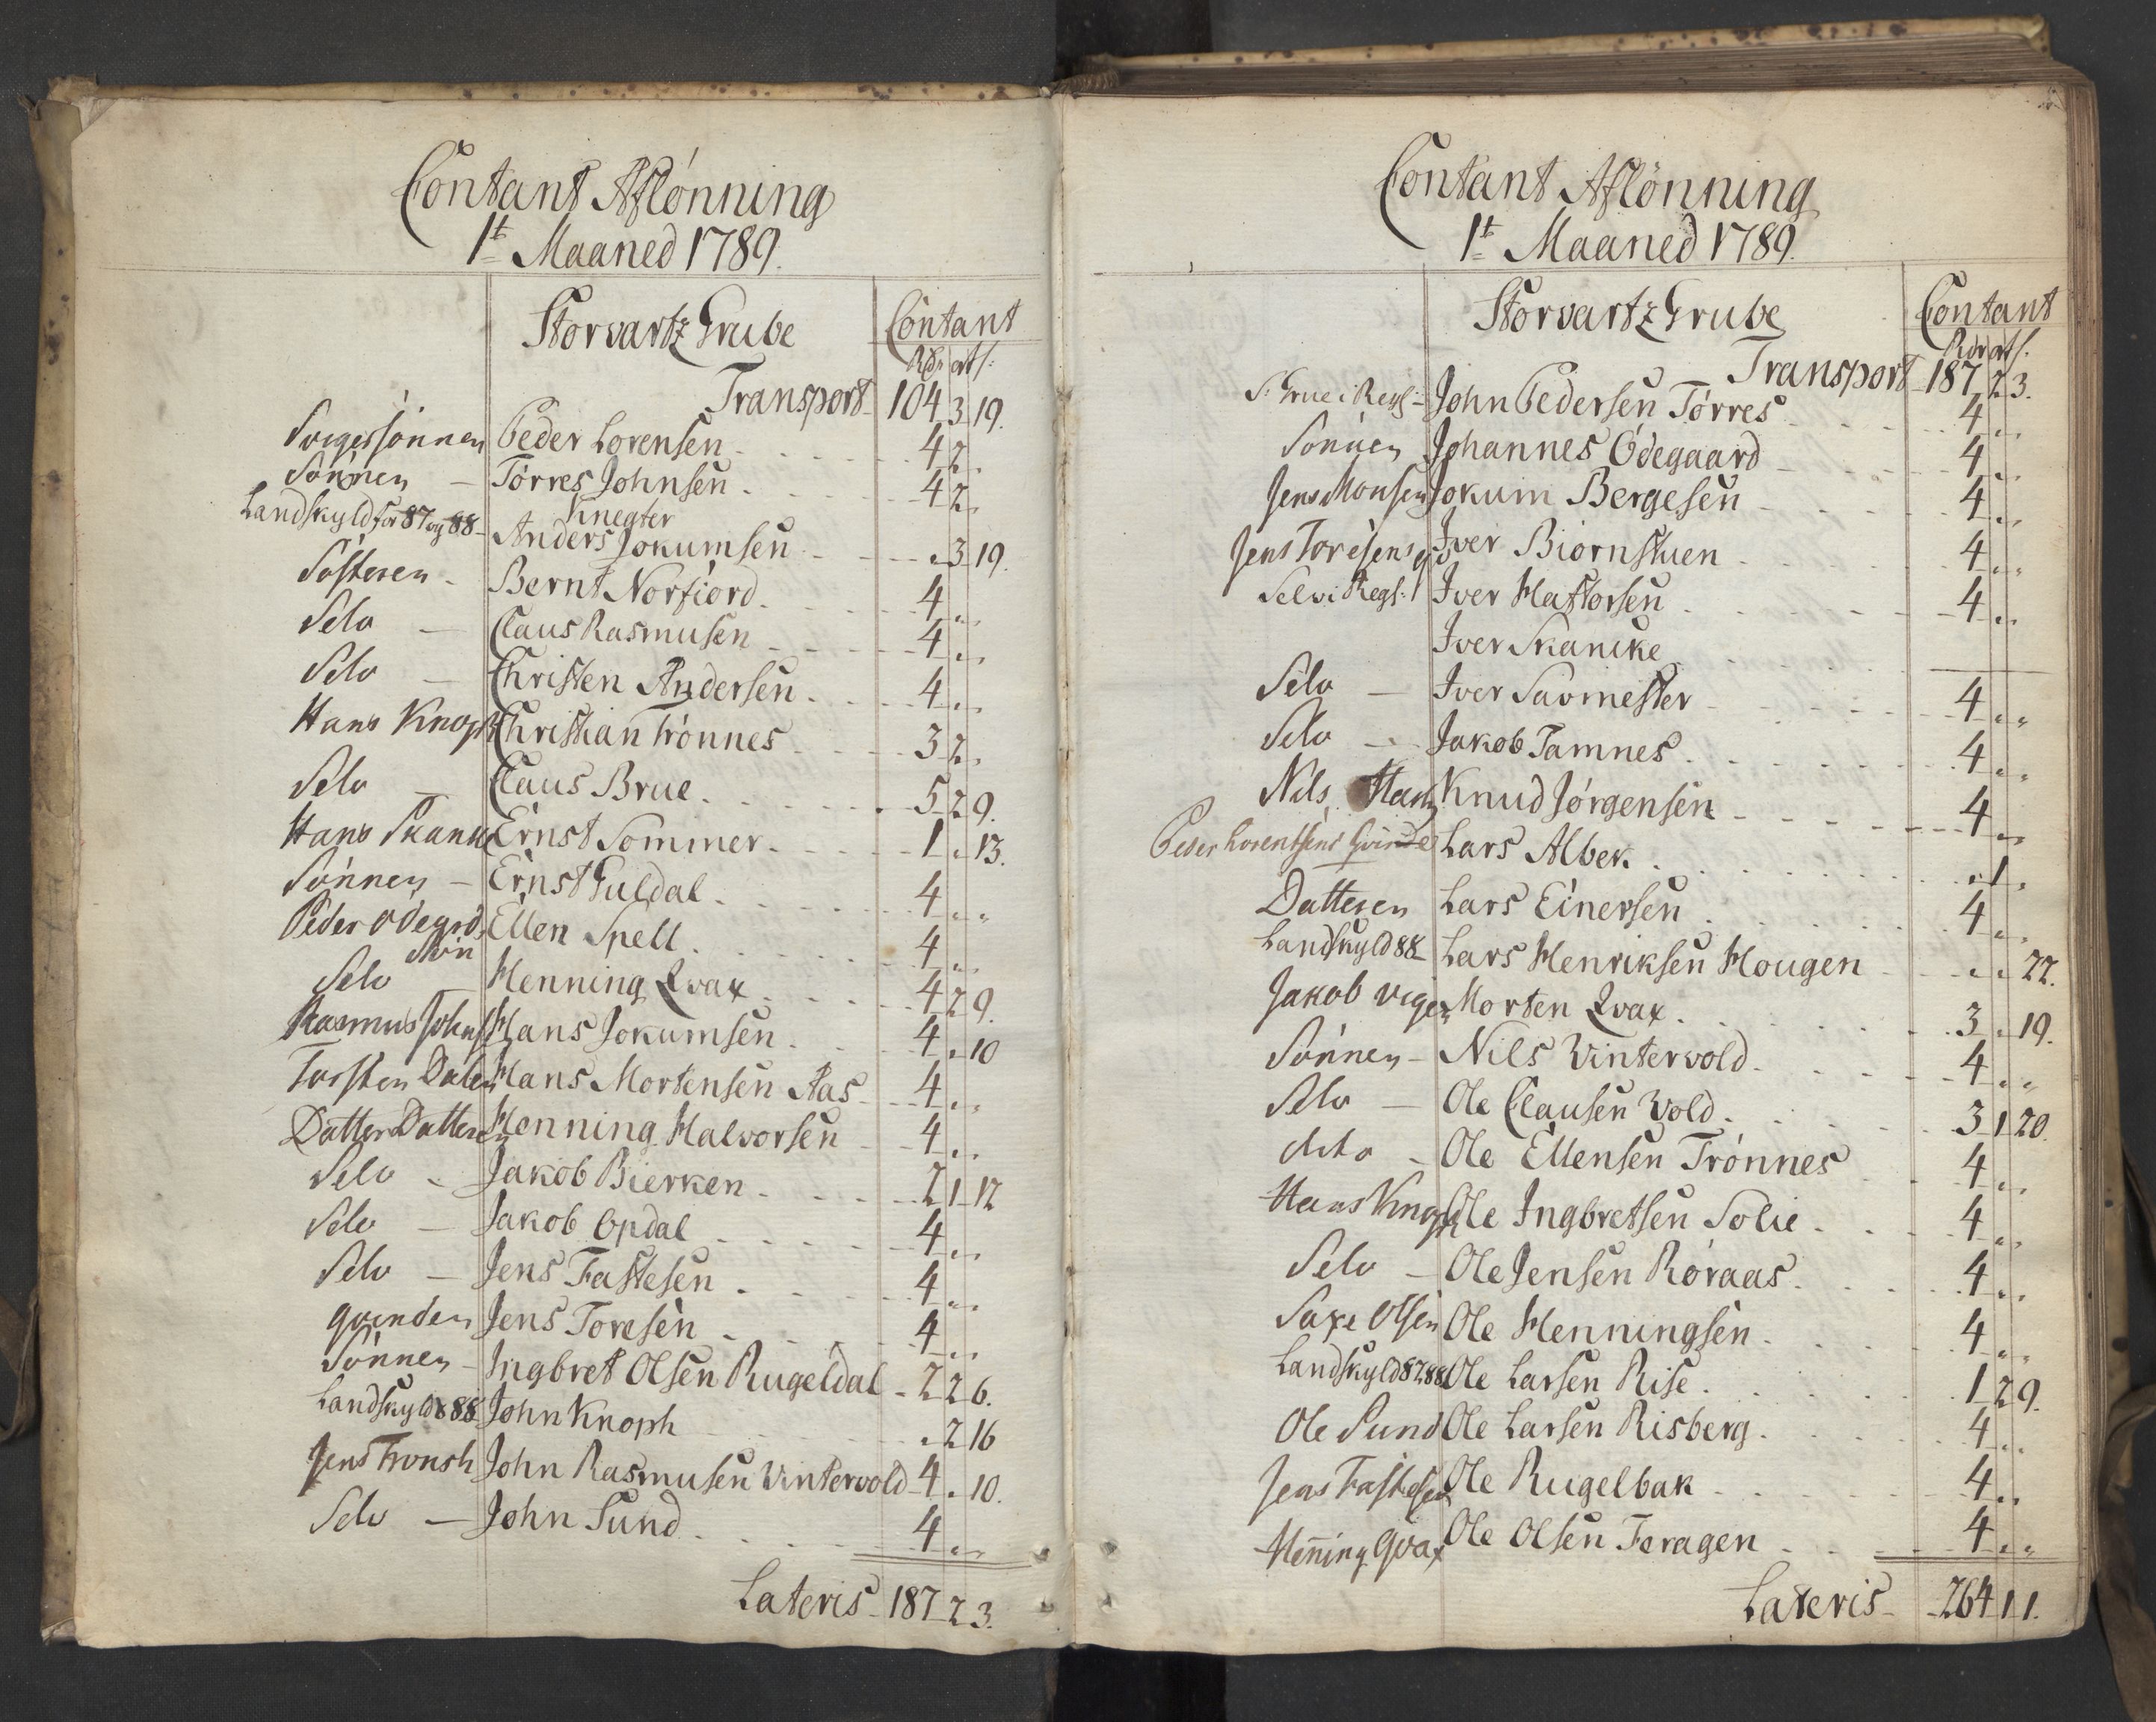 Contant Aflönning
1t Maaned 1789.
Storvartz Grube Contant
Rdr ort s:
Transport 104 3 19.
Svigersönnen Peder Lorensen 4 2 „
Sönnen Törres Johnsen 4 2 „
Knegter
Landskyld for 87 og 88 Anders Jokumsen „ 3 19.
Södsteren Bernt Norfiord 4 „ „
Selv Claus Rasmusen 4 „ „
Selv Christen Andersen 4 „ „
Hans Knoph Christian Trönnes 3 2 „
Selv Claus Brue 5 2 9.
Hans Skanke Ernst Sommer 1 „ 13.
Sönnen Ernst Guldal 4 „ „
Peder Ödegrd. Ellen Spell 4 „ „
Selv Henning Qvax 4 2 9.
Rasmus Johns Hans Jokumsen 4 „ 10
Torsten Dalen Hans Mortensen Aas 4 „ „
Datter Datteren Henning Halvorsen 4 „ „
Selv Jakob Bierken 2 1 12
Selv Jakob Opdal 4 „ „
Selv Jens Fastesen 4 „ „
qvinden Jens Toresen 4 „ „
Sönnen Ingbret Olsen Rugeldal 2 2 6.
Landskyld 88 John Knoph „ 2 16
Jens Tronsh John Rasmusen Vintervold 4 „ 10.
Selv John Sund 4 „ „
Lateris 187 2 3.
Contant Aflönning
1t Maaned 1789.
Storvartz Grube Contant
Rdr ort s.
Transport 187 2 3.
John Pedersen Törres 4 „ „
Sönnen Johannes Ödegaard 4 „ „
Jens Monsen Jokum Bergesen 4 „ „
Jens Toresens Iver Biörnstuen 4 „ „
Selv i Regs: Iver Haftorsen 4 „ „
Iver Skancke
Selv Iver Savmester 4 „ „
Selv Jakob Tamnes 4 „ „
Nils Knud Jörgensen 4 „ „
Peder Lorentsens Qvinde Lars Albek „ 1 „
Datteren Lars Einersen 4 „ „
Landskyld 88 Lars Henriksen Hougen „ „ 22.
Jakob Morten Qvax 3 „ 19.
Sönnen Nils Vintervold 4 „ „
Selv Ole Clausen Vold 3 1 20.
dito Ole Ellensen Trönnes 4 „ „
Hans Knoph Ole Ingbretsen Solie 4 „ „
Selv Ole Jensen Röraas 4 „ „
Saxe Olsen Ole Henningsen 4 „ „
Landskyld 87.88 Ole Larsen Rise 1 2 9.
Ole Sund Ole Larsen Risberg 4 „ „
Jens Fastesen Ole Rugelbak 4 „ „
Hening Qvax Ole Olsen Feragen 4 „ „
Lateris 264 1 1.